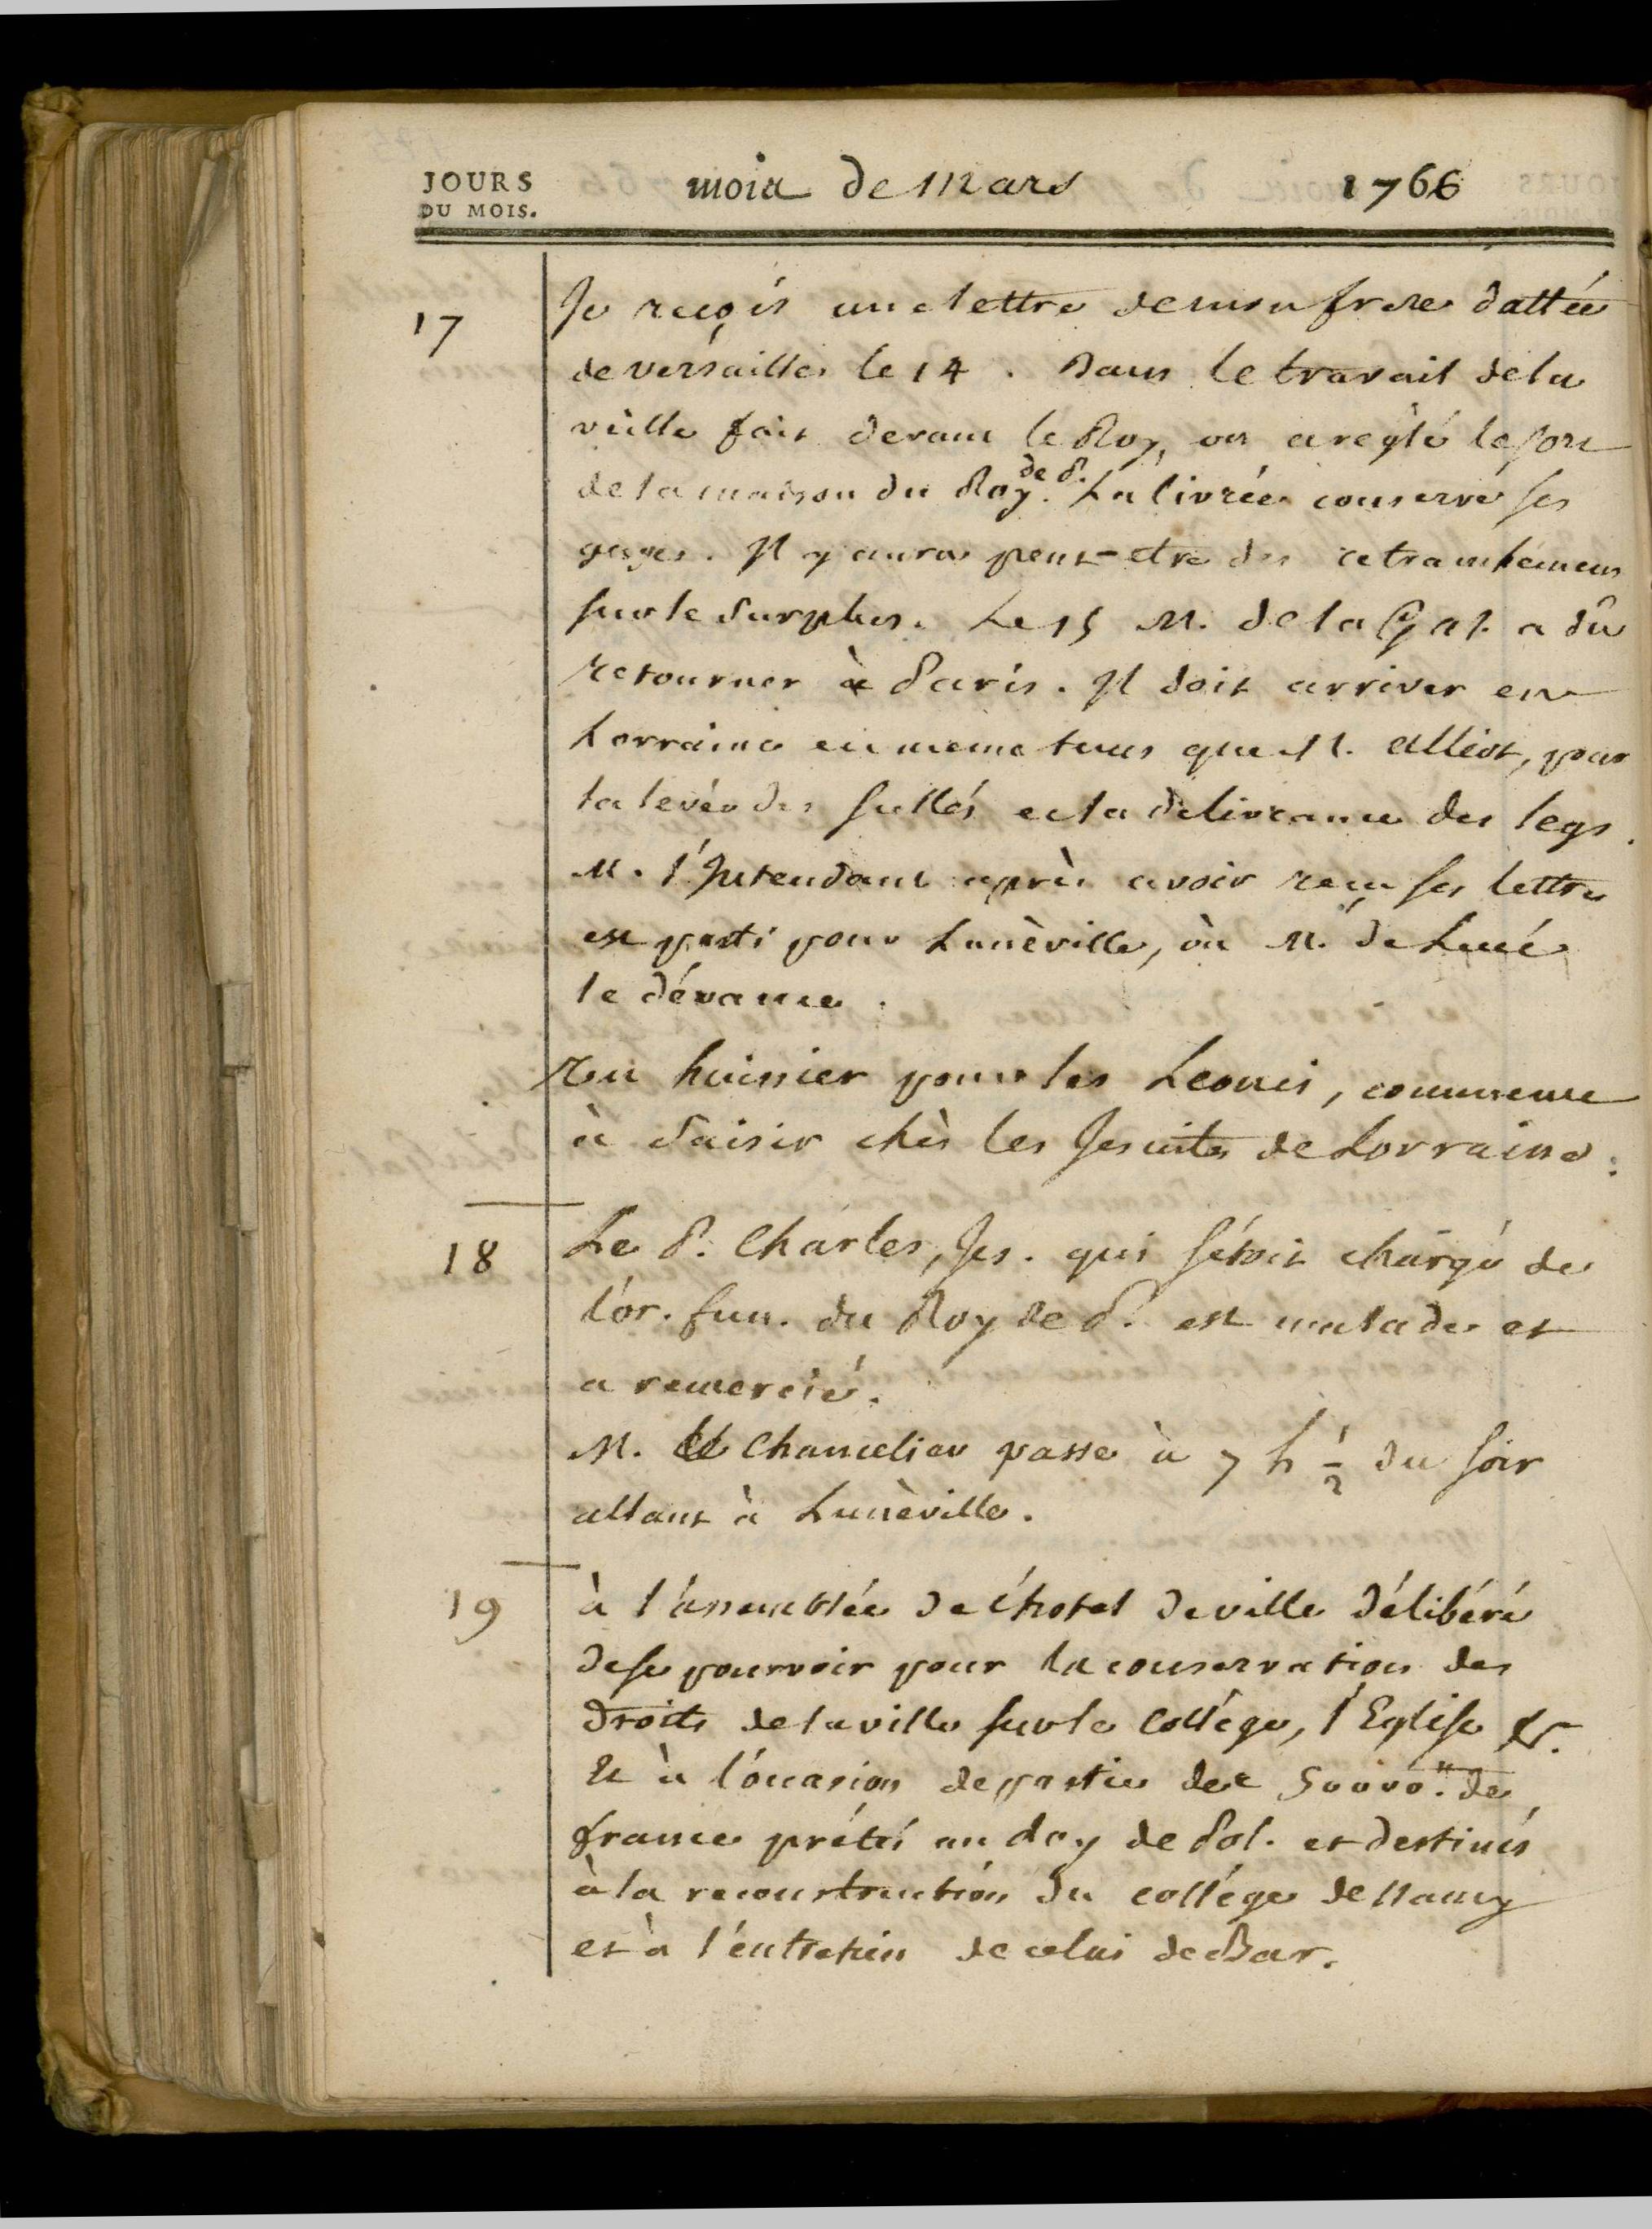 JOURS
DU MOIS.
mois de Mars 1766
17
Je reçois une lettre de mon frere dattée
de versailles le 14. Dans le travail de la
veille fait devant le Roy, on a reglé le sort
de la maison du Roy de P. La livrée conserve ses
gages. Il y aura peut-etre des retranchemens
sur le surplus. Le 15 M. de la Gal. a dû
retourner à Paris. Il doit arriver en
Lorraine en meme tems que M. Alliot, pour
la levée des scellés et la delivrance des legs.
M. l'Intendant après avoir reçu ses lettres
est parti pour Lunèville, où M. de Lucé
le dévance.
Un huissier pour les Leonci, commence
à saisir chès les Jesuites de Lorraine.
18
Le P. Charles, Jes. qui s'étoit chargé de
l'or. fun. du Roy de P. est malade et
a remercié.
M. le Chancelier passe à 7 h 1/2 du soir
allant à Lunèville.
19
à l'assemblée de l'hotel de ville délibéré
de se pourvoir pour la conservation des
droits de la ville sur le Collége, l'Eglise &c.
Et à l'occasion de partie des 50000.ᴴ de
france prétés au Roy de Pol. et destinés
à la reconstruction du collége de Nancy
et à l'entretien de celui de Bar.